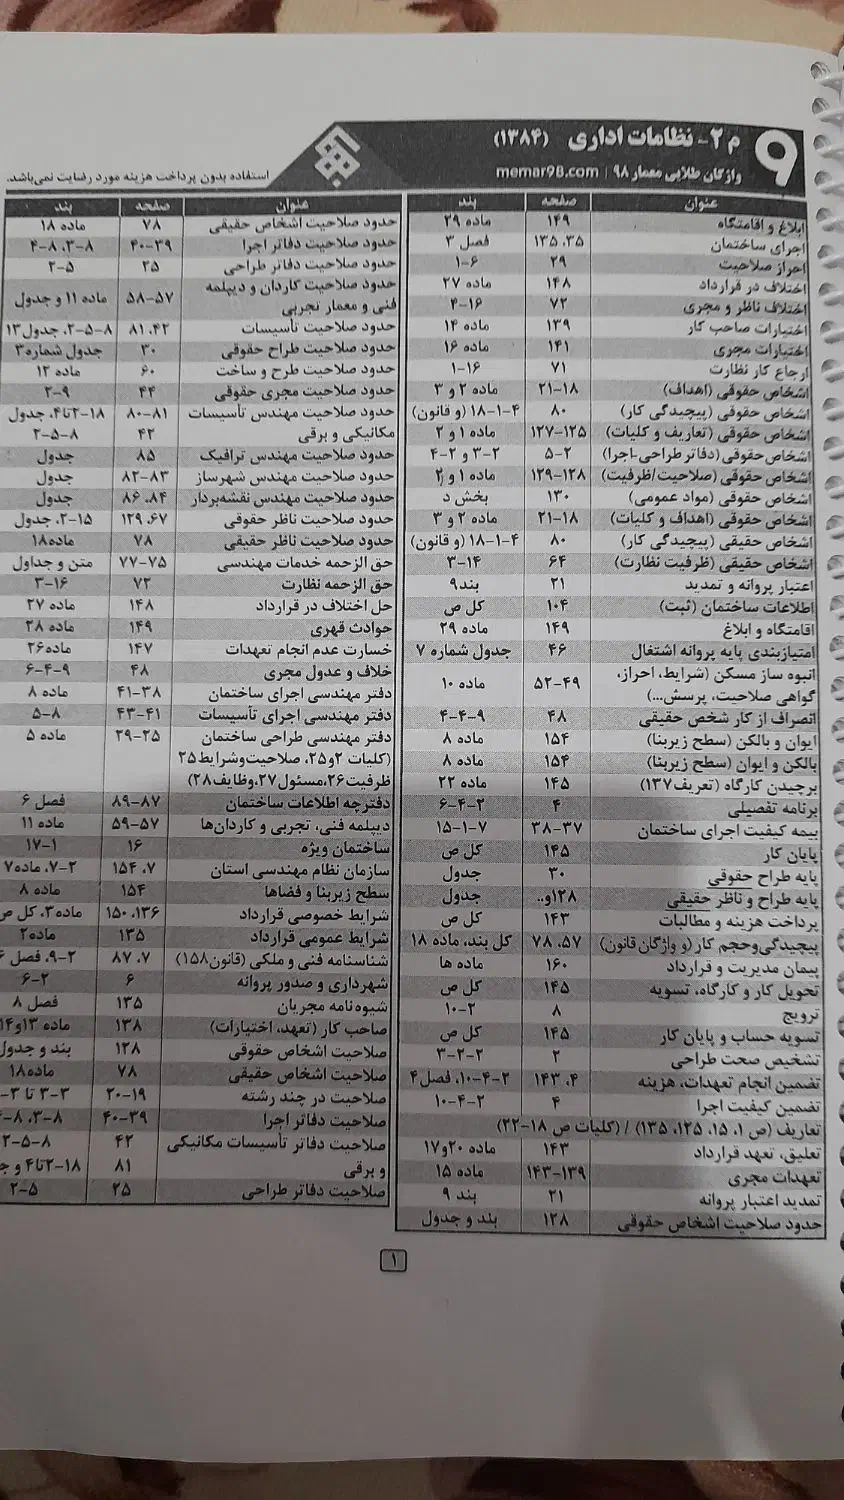 و
م ۲- نظامات اداری (۱۳۸۴)
واژگان طلایی معمار ۹۸ | memar98.com
استفاده بدون پرداخت هزینه مورد رضایت نمی‌باشد.
عنوان صفحه بند
ابلاغ و اقامتگاه ۱۴۹ ماده ۲۹
اجرای ساختمان ۳۵، ۱۳۵ فصل ۳
احراز صلاحیت ۲۹ ۶-۱
اختلاف در قرارداد ۱۴۸ ماده ۲۷
اختلاف ناظر و مجری ۷۲ ۱۶-۴
اختیارات صاحب کار ۱۳۹ ماده ۱۴
اختیارات مجری ۱۴۱ ماده ۱۶
ارجاع کار نظارت ۷۱ ۱۶-۱
اشخاص حقوقی (اهداف) ۱۸-۲۱ ماده ۲ و ۳
اشخاص حقوقی (پیچیدگی کار) ۸۰ ۴-۱-۱۸ (و قانون)
اشخاص حقوقی (تعاریف و کلیات) ۱۲۵-۱۲۷ ماده ۱ و ۲
اشخاص حقوقی (دفاتر طراحی-اجرا) ۲-۵ ۲-۳ و ۲-۴
اشخاص حقوقی (صلاحیت/ظرفیت) ۱۲۸-۱۲۹ ماده ۱ و ۲
اشخاص حقوقی (مواد عمومی) ۱۳۰ بخش د
اشخاص حقوقی (اهداف و کلیات) ۱۸-۲۱ ماده ۲ و ۳
اشخاص حقیقی (پیچیدگی کار) ۸۰ ۴-۱-۱۸ (و قانون)
اشخاص حقیقی (ظرفیت نظارت) ۶۴ ۱۴-۳
اعتبار پروانه و تمدید ۲۱ بند۹
اطلاعات ساختمان (ثبت) ۱۰۴ کل ص
اقامتگاه و ابلاغ ۱۴۹ ماده ۲۹
امتیازبندی پایه پروانه اشتغال ۴۶ جدول شماره ۷
انبوه ساز مسکن (شرایط، احراز،
گواهی صلاحیت، پرسش...) ۴۹-۵۲ ماده ۱۰
انصراف از کار شخص حقیقی ۴۸ ۹-۴-۴
ایوان و بالکن (سطح زیربنا) ۱۵۴ ماده ۸
بالکن و ایوان (سطح زیربنا) ۱۵۴ ماده ۸
برچیدن کارگاه (تعریف۱۳۷) ۱۴۵ ماده ۲۲
برنامه تفصیلی ۴ ۲-۴-۶
بیمه کیفیت اجرای ساختمان ۳۷-۳۸ ۷-۱-۱۵
پایان کار ۱۴۵ کل ص
پایه طراح حقوقی ۳۰ جدول
پایه طراح و ناظر حقیقی ۱۲۸و.. جدول
پرداخت هزینه و مطالبات ۱۴۳ کل ص
پیچیدگی‌وحجم کار(و واژگان قانون) ۵۷، ۷۸ کل بند، ماده ۱۸
پیمان مدیریت و قرارداد ۱۶۰ ماده ها
تحویل کار و کارگاه، تسویه ۱۴۵ کل ص
ترویج ۸ ۲-۱۰
تسویه حساب و پایان کار ۱۴۵ کل ص
تشخیص صحت طراحی ۲ ۲-۲-۳
تضمین انجام تعهدات، هزینه ۴، ۱۴۳ ۲-۴-۱۰، فصل۴
تضمین کیفیت اجرا ۴ ۲-۴-۱۰
تعاریف (ص ۱، ۱۵، ۱۲۵، ۱۳۵) / (کلیات ص ۱۸-۲۲)
تعلیق، تعهد قرارداد ۱۴۳ ماده ۲۰و۱۷
تعهدات مجری ۱۳۹-۱۴۳ ماده ۱۵
تمدید اعتبار پروانه ۲۱ بند ۹
حدود صلاحیت اشخاص حقوقی ۱۲۸ بند و جدول
عنوان صفحه بند
حدود صلاحیت اشخاص حقیقی ۷۸ ماده ۱۸
حدود صلاحیت دفاتر اجرا ۳۹-۴۰ ۸-۳، ۸-۴
حدود صلاحیت دفاتر طراحی ۲۵ ۵-۲
حدود صلاحیت کاردان و دیپلمه
فنی و معمار تجربی ۵۷-۵۸ ماده ۱۱ و جدول
حدود صلاحیت تأسیسات ۴۲، ۸۱ ۸-۵-۲، جدول۱۳
حدود صلاحیت طراح حقوقی ۳۰ جدول شماره۳
حدود صلاحیت طرح و ساخت ۶۰ ماده ۱۲
حدود صلاحیت مجری حقوقی ۴۴ ۹-۲
حدود صلاحیت مهندس تأسیسات ۸۱-۸۰ ۱۸-۲تا۴، جدول
مکانیکی و برقی ۴۲ ۸-۵-۲
حدود صلاحیت مهندس ترافیک ۸۵ جدول
حدود صلاحیت مهندس شهرساز ۸۳-۸۲ جدول
حدود صلاحیت مهندس نقشه‌بردار ۸۴، ۸۶ جدول
حدود صلاحیت ناظر حقوقی ۶۷، ۱۲۹ ۱۵-۲، جدول
حدود صلاحیت ناظر حقیقی ۷۸ ماده۱۸
حق الزحمه خدمات مهندسی ۷۵-۷۷ متن و جداول
حق الزحمه نظارت ۷۲ ۱۶-۳
حل اختلاف در قرارداد ۱۴۸ ماده ۲۷
حوادث قهری ۱۴۹ ماده ۲۸
خسارت عدم انجام تعهدات ۱۴۷ ماده۲۶
خلاف و عدول مجری ۴۸ ۹-۴-۶
دفتر مهندسی اجرای ساختمان ۳۸-۴۱ ماده ۸
دفتر مهندسی اجرای تأسیسات ۴۱-۴۳ ۸-۵
دفتر مهندسی طراحی ساختمان ۲۵-۲۹ ماده ۵
(کلیات ۲و۲۵، صلاحیت‌وشرایط۲۵
ظرفیت۲۶،مسئول۲۷،وظایف۲۸)
دفترچه اطلاعات ساختمان ۸۷-۸۹ فصل ۶
دیپلمه فنی، تجربی و کاردان‌ها ۵۷-۵۹ ماده ۱۱
ساختمان ویژه ۱۶ ۱-۱۷
سازمان نظام مهندسی استان ۷، ۱۵۴ ۲-۷، ماده۷
سطح زیربنا و فضاها ۱۵۴ ماده ۸
شرایط خصوصی قرارداد ۱۳۶، ۱۵۰ ماده۳، کل ص
شرایط عمومی قرارداد ۱۳۵ ماده۲
شناسنامه فنی و ملکی (قانون۱۵۸) ۷، ۸۷ ۲-۹، فصل ۶
شهرداری و صدور پروانه ۶ ۲-۶
شیوه‌نامه مجریان ۱۳۵ فصل ۸
صاحب کار (تعهد، اختیارات) ۱۳۸ ماده ۱۳و۱۴
صلاحیت اشخاص حقوقی ۱۲۸ بند و جدول
صلاحیت اشخاص حقیقی ۷۸ ماده۱۸
صلاحیت در چند رشته ۱۹-۲۰ ۳-۳ تا ۳-
صلاحیت دفاتر اجرا ۳۹-۴۰ ۸-۳، ۸-
صلاحیت دفاتر تأسیسات مکانیکی ۴۲ ۸-۵-۲
و برقی ۸۱ ۱۸-۲تا۴ و ج
صلاحیت دفاتر طراحی ۲۵ ۵-۲
۱